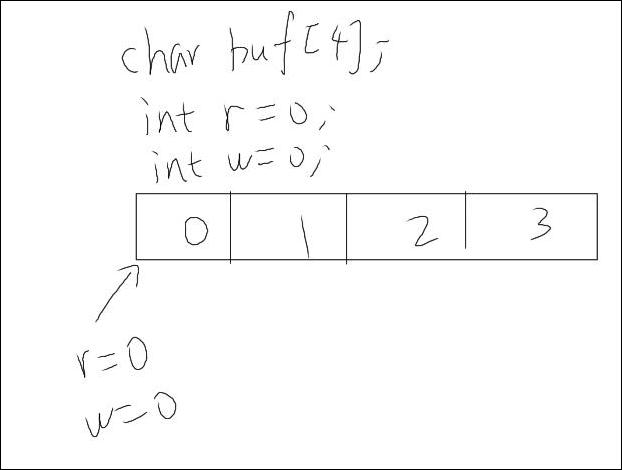 char buf[4];
int r=0;
int w=0;
0 1 2 3
r=0
w=0